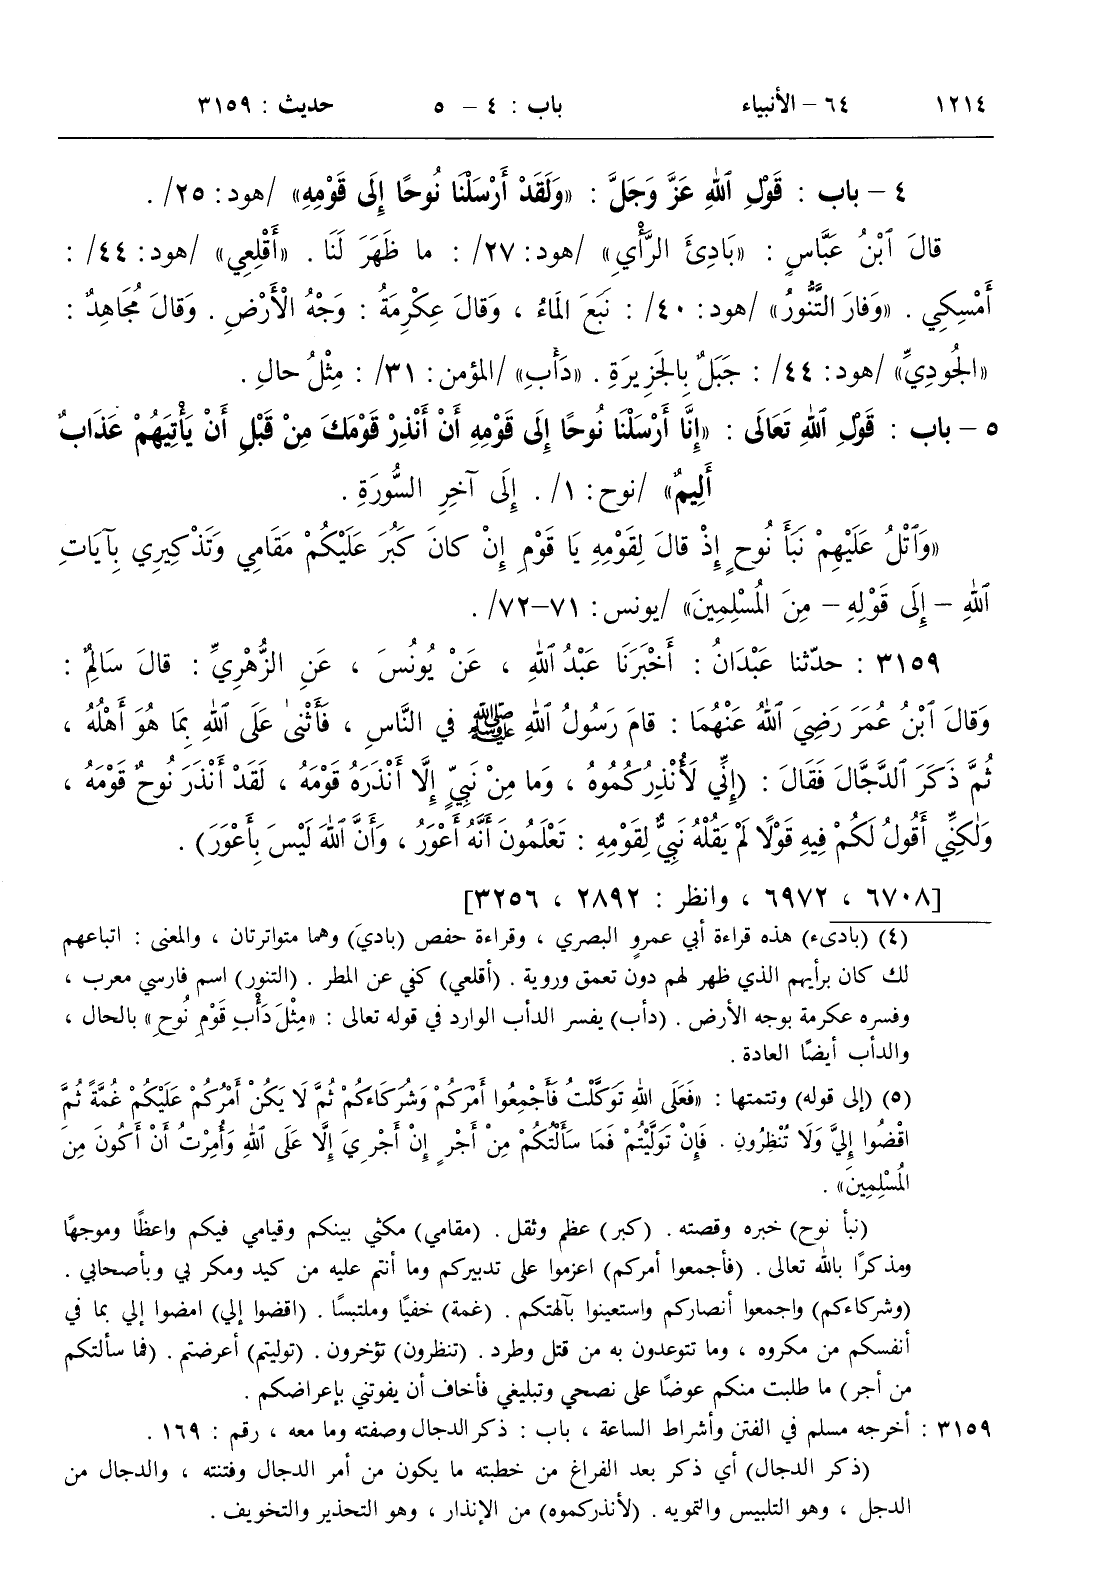 ١٢١٤ ٦٤ – الأنبياء باب : ٤ – ٥ حديث : ٣١٥٩
٤ – باب : قَوْلِ ٱللهِ عَزَّ وَجَلَّ : «وَلَقَدْ أَرْسَلْنَا نُوحًا إِلَى قَوْمِهِ» /هود: ٢٥/ .
قالَ ٱبْنُ عَبَّاسٍ : «بَادِئَ الرَّأْيِ» /هود: ٢٧/ : ما ظَهَرَ لَنَا . «أَقْلِعِي» /هود: ٤٤/ :
أَمْسِكِي . «وَفارَ التَّنُّورُ» /هود: ٤٠/ : نَبَعَ المَاءُ ، وَقالَ عِكْرِمَةُ : وَجْهُ الْأَرْضِ . وَقالَ مُجَاهِدٌ :
«الجُودِيِّ» /هود: ٤٤/ : جَبَلٌ بِالجَزِيرَةِ . «دَأْبِ» /المؤمن: ٣١/ : مِثْلُ حالِ .
٥ – باب : قَوْلِ ٱللهِ تَعَالَى : «إِنَّا أَرْسَلْنَا نُوحًا إِلَى قَوْمِهِ أَنْ أَنْذِرْ قَوْمَكَ مِنْ قَبْلِ أَنْ يَأْتِيَهُمْ عَذَابٌ
أَلِيمٌ» /نوح: ١/ . إِلَى آخِرِ السُّورَةِ .
«وَٱتْلُ عَلَيْهِمْ نَبَأَ نُوحٍ إِذْ قالَ لِقَوْمِهِ يَا قَوْمِ إِنْ كانَ كَبُرَ عَلَيْكُمْ مَقَامِي وَتَذْكِيرِي بِآيَاتِ
ٱللهِ – إِلَى قَوْلِهِ – مِنَ الْمُسْلِمِينَ» /يونس: ٧١–٧٢/ .
٣١٥٩ : حدّثنا عَبْدَانُ : أَخْبَرَنَا عَبْدُ ٱللهِ ، عَنْ يُونُسَ ، عَنِ الزُّهْرِيِّ : قالَ سَالِمٌ :
وَقالَ ٱبْنُ عُمَرَ رَضِيَ ٱللهُ عَنْهُمَا : قامَ رَسُولُ ٱللهِ ﷺ في النَّاسِ ، فَأَثْنىٰ عَلَى ٱللهِ بِمَا هُوَ أَهْلُهُ ،
ثُمَّ ذَكَرَ ٱلدَّجَّالَ فَقَالَ : (إِنِّي لَأُنْذِرُكُمُوهُ ، وَما مِنْ نَبِيٍّ إِلَّا أَنْذَرَهُ قَوْمَهُ ، لَقَدْ أَنْذَرَ نُوحٌ قَوْمَهُ ،
وَلٰكِنِّي أَقُولُ لَكُمْ فِيهِ قَوْلًا لَمْ يَقُلْهُ نَبِيٌّ لِقَوْمِهِ : تَعْلَمُونَ أَنَّهُ أَعْوَرُ ، وَأَنَّ ٱللهَ لَيْسَ بِأَعْوَرَ) .
[٦٧٠٨ ، ٦٩٧٢ ، وانظر : ٢٨٩٢ ، ٣٢٥٦]
(٤) (بادىء) هذه قراءة أبي عمروٍ البصري ، وقراءة حفص (باديَ) وهما متواترتان ، والمعنى : اتباعهم
لك كان برأيهم الذي ظهر لهم دون تعمق وروية . (أقلعي) كفي عن المطر . (التنور) اسم فارسي معرب ،
وفسره عكرمة بوجه الأرض . (دأب) يفسر الدأب الوارد في قوله تعالى : «مِثْلَ دَأْبِ قَوْمِ نُوحٍ» بالحال ،
والدأب أيضًا العادة .
(٥) (إلى قوله) وتتمتها : «فَعَلَى اللهِ تَوَكَّلْتُ فَأَجْمِعُوا أَمْرَكُمْ وَشُرَكَاءَكُمْ ثُمَّ لَا يَكُنْ أَمْرُكُمْ عَلَيْكُمْ غُمَّةً ثُمَّ
اقْضُوا إِلَيَّ وَلَا تُنْظِرُونِ . فَإِنْ تَوَلَّيْتُمْ فَمَا سَأَلْتُكُمْ مِنْ أَجْرٍ إِنْ أَجْرِيَ إِلَّا عَلَى اللهِ وَأُمِرْتُ أَنْ أَكُونَ مِنَ
الْمُسْلِمِينَ» .
(نبأ نوح) خبره وقصته . (كبر) عظم وثقل . (مقامي) مكثي بينكم وقيامي فيكم واعظًا وموجهًا
ومذكرًا بالله تعالى . (فأجمعوا أمركم) اعزموا على تدبيركم وما أنتم عليه من كيد ومكر بي وبأصحابي .
(وشركاءكم) واجمعوا أنصاركم واستعينوا بآلهتكم . (غمة) خفيًا وملتبسًا . (اقضوا إلي) امضوا إلي بما في
أنفسكم من مكروه ، وما تتوعدون به من قتل وطرد . (تنظرون) تؤخرون . (توليتم) أعرضتم . (فما سألتكم
من أجر) ما طلبت منكم عوضًا على نصحي وتبليغي فأخاف أن يفوتني بإعراضكم .
٣١٥٩ : أخرجه مسلم في الفتن وأشراط الساعة ، باب : ذكر الدجال وصفته وما معه ، رقم : ١٦٩ .
(ذكر الدجال) أي ذكر بعد الفراغ من خطبته ما يكون من أمر الدجال وفتنته ، والدجال من
الدجل ، وهو التلبيس والتمويه . (لأنذركموه) من الإنذار ، وهو التحذير والتخويف .